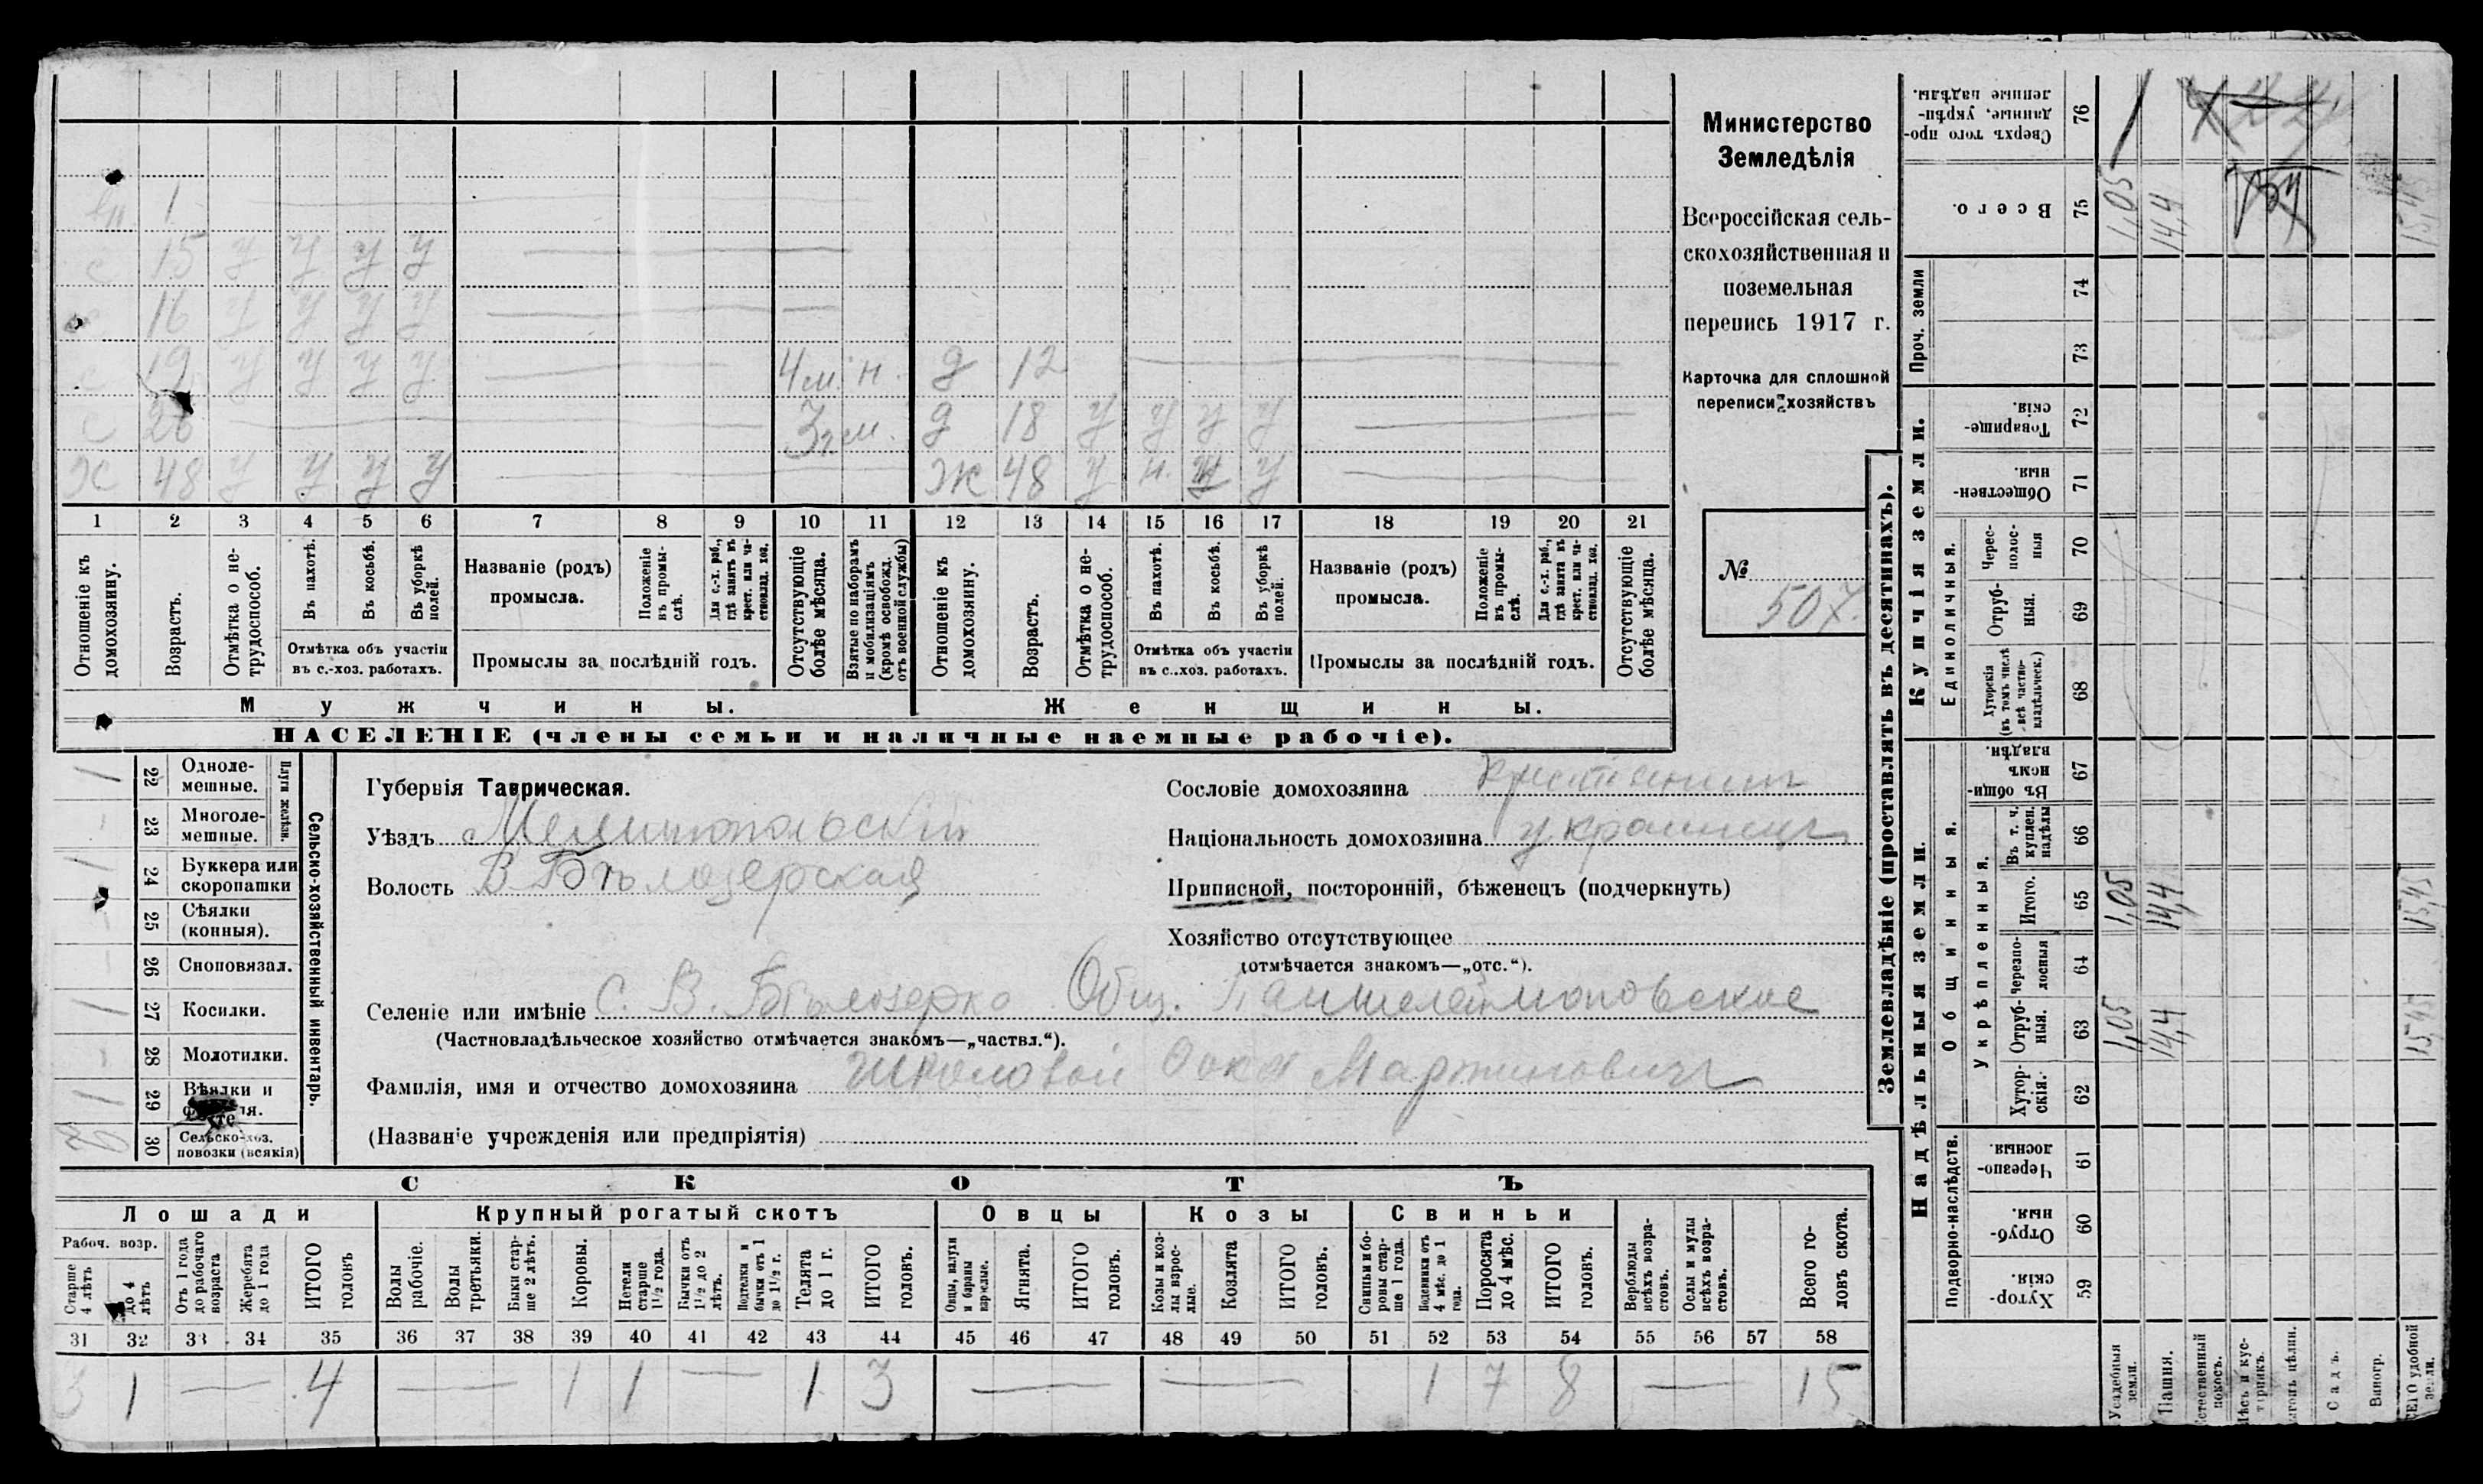 Министерство
Земледѣлія
Всероссійская сель-
скохозяйственная и
поземельная
перепись 1917 г.
Карточка для сплошной
переписи хозяйствъ
№
507.
1
15 у у у у
16 у у у у
с 19 у у у у 4 м. н. д 12
с 26 3 г. м. д 18 у у у у
Ж 48 у у у у Ж 48 у н. у
1 2 3 4 5 6 7 8 9 10 11 12 13 14 15 16 17 18 19 20 21
Отношеніе къ домохозяину.
Возрастъ.
Отмѣтка о не-трудоспособ.
Въ пахотѣ.
Въ косьбѣ.
Въ уборкѣ полей.
Отмѣтка объ участіи въ с.-хоз. работахъ.
Названіе (родъ) промысла.
Положеніе въ промы-слѣ.
Для с.-х. раб., гдѣ занятъ въ крест. или ча-стновлад. хоз.
Промыслы за послѣдній годъ.
Отсутствующіе болѣе мѣсяца.
Взятые по наборамъ и мобилизаціямъ (кромѣ освобожд. отъ военной службы)
Отношеніе къ домохозяину.
Возрастъ.
Отмѣтка о не-трудоспособ.
Въ пахотѣ.
Въ косьбѣ.
Въ уборкѣ полей.
Отмѣтка объ участіи въ с.-хоз. работахъ.
Названіе (родъ) промысла.
Положеніе въ промы-слѣ.
Для с.-х. раб., гдѣ занята въ крест. или ча-стновлад. хоз.
Промыслы за послѣдній годъ.
Отсутствующіе болѣе мѣсяца.
Мужчины.
Женщины.
НАСЕЛЕНІЕ (члены семьи и наличные наемные рабочіе).
Сельско-хозяйственный инвентарь.
Плуги желѣзн.
1 22 Одноле-мешные.
23 Многоле-мешные.
1 24 Буккера или скоропашки
25 Сѣялки (конныя).
26 Сноповязал.
1 27 Косилки.
28 Молотилки.
1 29 Вѣялки и
30 Сельско-хоз. повозки (всякія)
Губернія Таврическая.
Уѣздъ Мелитопольскій
Волость В Бѣлозерская
Сословіе домохозяина крестьянинъ
Національность домохозяина украинецъ
Приписной, посторонній, бѣженецъ (подчеркнуть)
Хозяйство отсутствующее
(отмѣчается знакомъ—„отс.“).
Селеніе или имѣніе С. В. Бѣлозерка Общ. Пантелеймоновское
(Частновладѣльческое хозяйство отмѣчается знакомъ—„частвл.“).
Фамилія, имя и отчество домохозяина Школовой Фока Мартиновичъ
(Названіе учрежденія или предпріятія)
СКОТЪ
Лошади
Крупный рогатый скотъ
Овцы
Козы
Свиньи
Рабоч. возр.
Старше 4 лѣтъ
до 4 лѣтъ
Отъ 1 года до рабочаго возраста
Жеребята до 1 года
ИТОГО головъ
Волы рабочіе.
Волы третьяки.
Быки стар-ше 2 лѣтъ.
Коровы.
Нетели старше 1½ года.
Бычки отъ 1½ до 2 лѣтъ.
Подтелки и бычки отъ 1 до 1½ г.
Телята до 1 г.
ИТОГО головъ.
Овцы, валухи и бараны взрослые.
Ягнята.
ИТОГО головъ.
Козы и коз-лы взрос-лые.
Козлята
ИТОГО головъ.
Свиньи и бо-ровы стар-ше 1 года.
Подсвинки отъ 4 мѣс. до 1 года.
Поросята до 4 мѣс.
ИТОГО головъ.
Верблюды всѣхъ возра-стовъ.
Ослы и мулы всѣхъ возра-стовъ.
Всего го-ловъ скота.
31 32 33 34 35 36 37 38 39 40 41 42 43 44 45 46 47 48 49 50 51 52 53 54 55 56 57 58
3 1 — 4 — 1 1 — 1 3 — — 1 7 8 — 15
Землевладѣніе (проставлять въ десятинахъ).
Надѣльныя земли.
Купчія земли.
Проч. земли
Подворно-наслѣдств.
Общинныя.
Укрѣпленныя.
Единоличныя.
76 Сверхъ того про-данные, укрѣп-ленные надѣлы.
75 Всего. 1,05 14,4 15,45
74
73
72 Товарище-скія.
71 Обществен-ныя.
70 Черес-полос-ныя
69 Отруб-ныя.
68 Хуторскія (въ томъ числѣ всѣ частно-владѣльческ.)
67 Въ общи-номъ владѣн.
66 Въ т. ч. куплен. надѣлы
65 Итого. 1,05 14,4 15,45
64 Черезпо-лосныя
63 Отруб-ныя. 1,05 14,4 15,45
62 Хутор-скія.
61 Черезпо-лосныя
60 Отруб-ныя.
59 Хутор-скія.
Усадебныя земли.
Пашня.
Садъ.
Виногр.